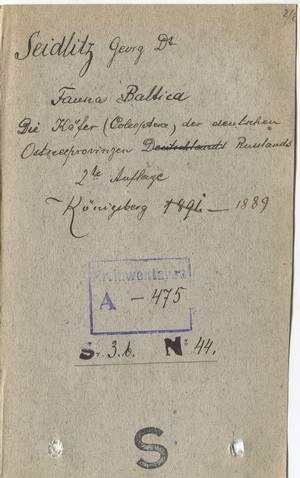 Seidlitz Georg Dr
Fauna Baltica
Die Käfer (Coleoptera) der deutschen
Ostseeprovinzen Deutschlands Russlands
2te Auflage
Königsberg 1891 — 1889
Nr. Inwentarza
A — 475
S. 3.b. No 44.
S